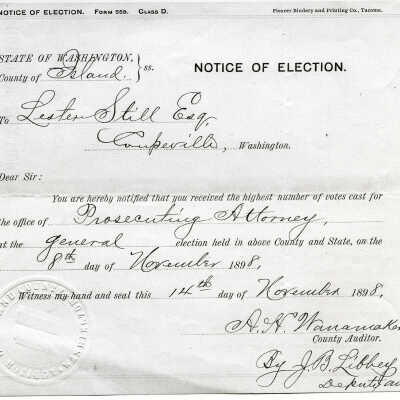 NOTICE OF ELECTION. FORM 559. CLASS D.
Pioneer Bindery and Printing Co., Tacoma.
STATE OF WASHINGTON,
County of Island. } ss.
NOTICE OF ELECTION.
To Lester Still Esq.
Coupeville, Washington.
Dear Sir:
You are hereby notified that you received the highest number of votes cast for
the office of Prosecuting Attorney,
at the general election held in above County and State, on the
8th day of November 1898,
Witness my hand and seal this 14th day of November 1898,
A. H. Wanamaker
County Auditor.
By J. B. Libbey